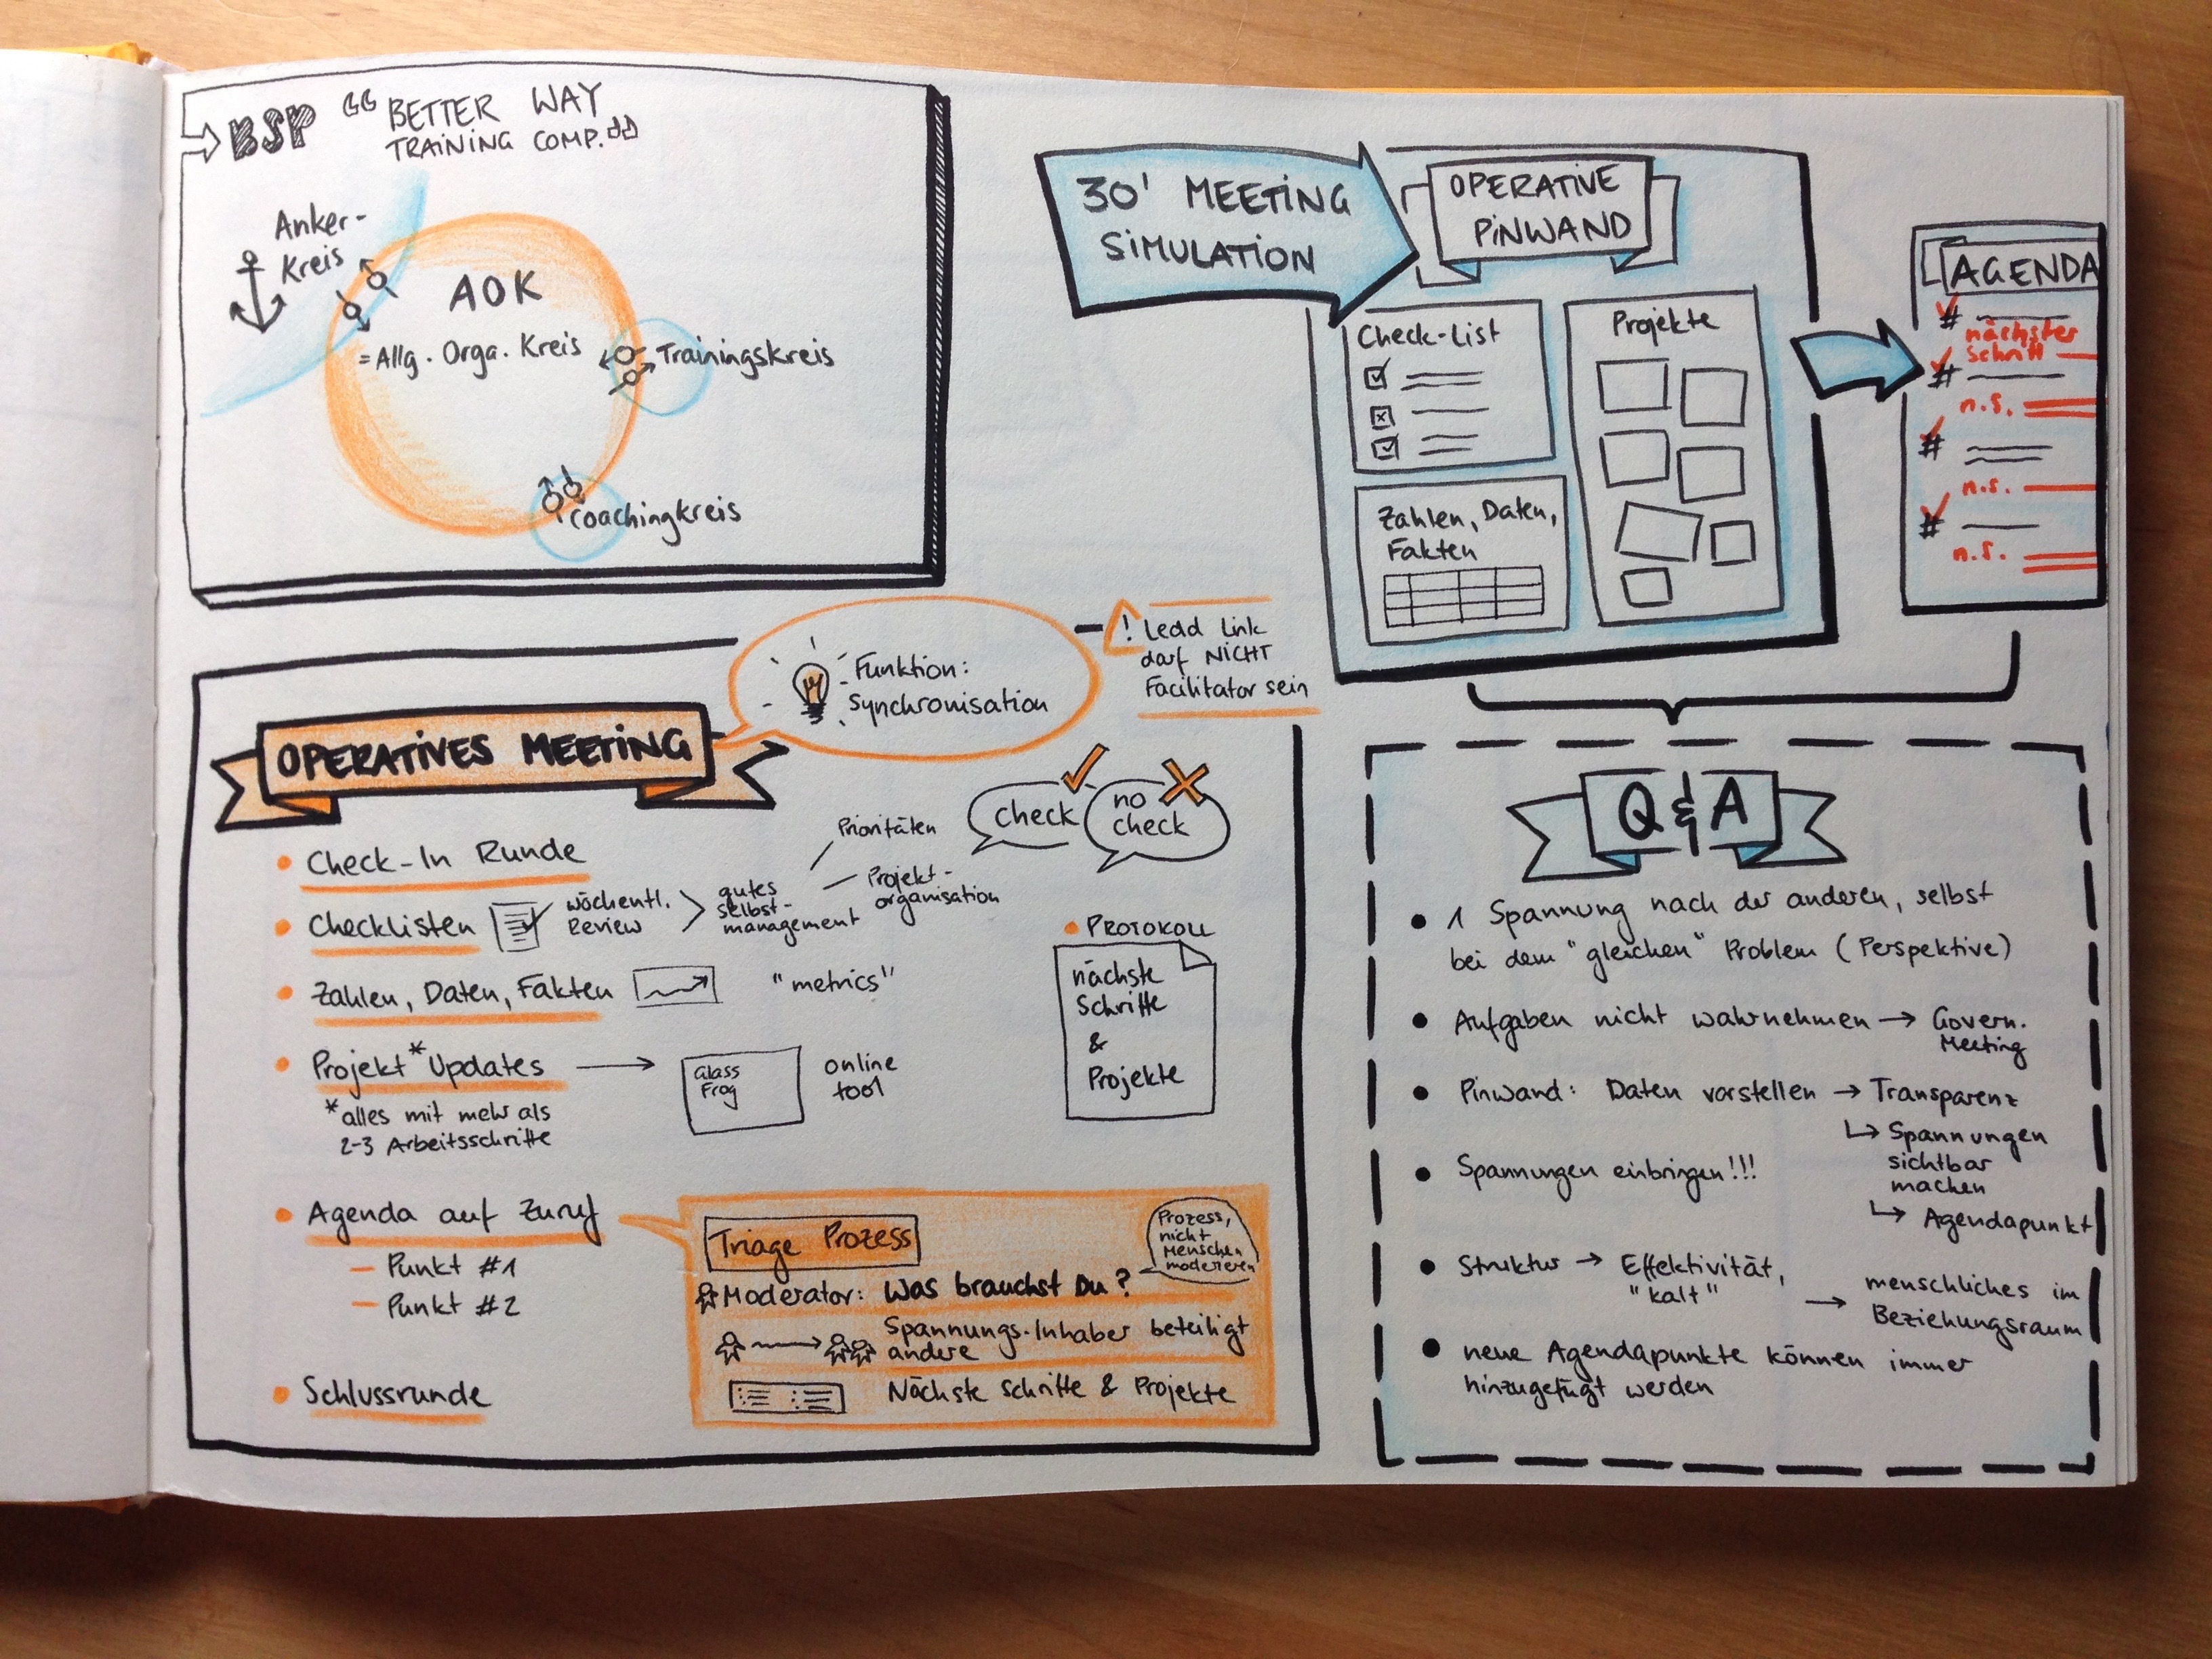 BSP "BETTER WAY
TRAINING COMP."
Anker-
Kreis
AOK
= Allg. Orga. Kreis
Trainingskreis
Coachingkreis
30' MEETING
SIMULATION
OPERATIVE
PINWAND
Check-List
Projekte
Zahlen, Daten,
Fakten
AGENDA
#
nächster
Schritt
#
n.S.
#
n.S.
#
n.S.
Funktion:
Synchronisation
! Lead Link
darf NICHT
Facilitator sein
OPERATIVES MEETING
• Check-In Runde
• Checklisten
wöchentl.
Review
gutes
selbst-
management
Prioritäten
Projekt-
organisation
check
no
check
• Zahlen, Daten, Fakten
"metrics"
• Projekt* Updates
Glass
Frog
online
tool
*alles mit mehr als
2-3 Arbeitsschritte
• PROTOKOLL
nächste
Schritte
&
Projekte
• Agenda auf Zuruf
– Punkt #1
– Punkt #2
• Schlussrunde
Triage Prozess
Prozess,
nicht
Menschen
moderieren
Moderator: Was brauchst Du?
Spannungs-Inhaber beteiligt
andere
Nächste Schritte & Projekte
Q & A
• 1 Spannung nach der anderen, selbst
bei dem "gleichen" Problem (Perspektive)
• Aufgaben nicht wahrnehmen → Govern.
Meeting
• Pinwand: Daten vorstellen → Transparenz
↳ Spannungen
sichtbar
machen
↳ Agendapunkt
• Spannungen einbringen!!!
• Struktur → Effektivität,
"kalt"
→ menschliches im
Beziehungsraum
• neue Agendapunkte können immer
hinzugefügt werden